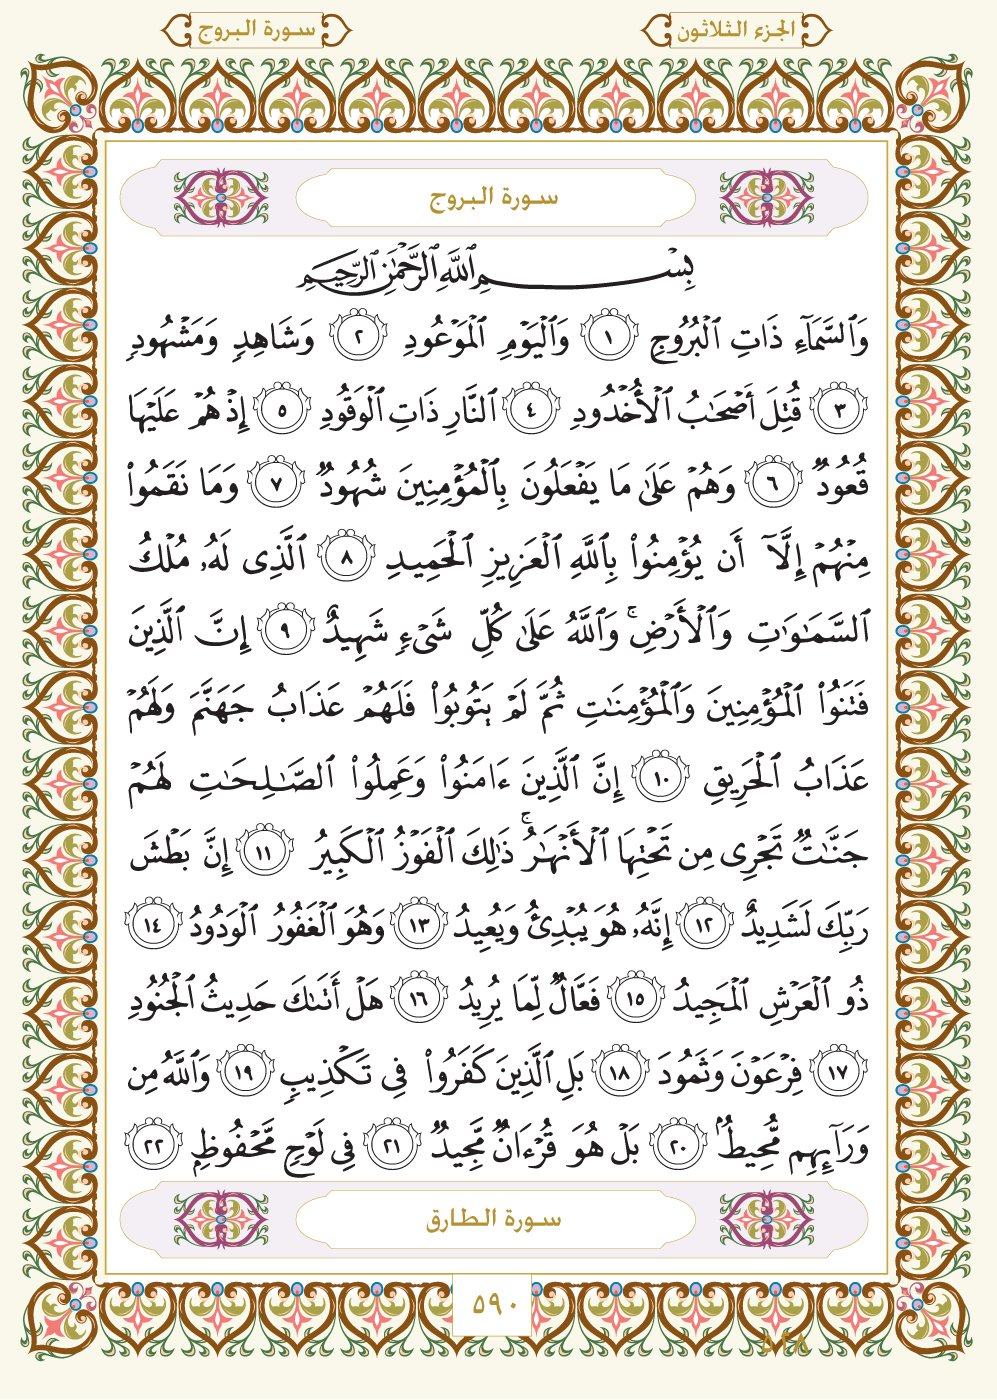 الجزء الثلاثون
سورة البروج
سورة البروج
بِسْمِ ٱللَّهِ ٱلرَّحْمَٰنِ ٱلرَّحِيمِ
وَٱلسَّمَآءِ ذَاتِ ٱلْبُرُوجِ ١ وَٱلْيَوْمِ ٱلْمَوْعُودِ ٢ وَشَاهِدٍ وَمَشْهُودٍ
٣ قُتِلَ أَصْحَٰبُ ٱلْأُخْدُودِ ٤ ٱلنَّارِ ذَاتِ ٱلْوَقُودِ ٥ إِذْ هُمْ عَلَيْهَا
قُعُودٌ ٦ وَهُمْ عَلَىٰ مَا يَفْعَلُونَ بِٱلْمُؤْمِنِينَ شُهُودٌ ٧ وَمَا نَقَمُوا۟
مِنْهُمْ إِلَّآ أَن يُؤْمِنُوا۟ بِٱللَّهِ ٱلْعَزِيزِ ٱلْحَمِيدِ ٨ ٱلَّذِى لَهُۥ مُلْكُ
ٱلسَّمَٰوَٰتِ وَٱلْأَرْضِ ۚ وَٱللَّهُ عَلَىٰ كُلِّ شَىْءٍ شَهِيدٌ ٩ إِنَّ ٱلَّذِينَ
فَتَنُوا۟ ٱلْمُؤْمِنِينَ وَٱلْمُؤْمِنَٰتِ ثُمَّ لَمْ يَتُوبُوا۟ فَلَهُمْ عَذَابُ جَهَنَّمَ وَلَهُمْ
عَذَابُ ٱلْحَرِيقِ ١٠ إِنَّ ٱلَّذِينَ ءَامَنُوا۟ وَعَمِلُوا۟ ٱلصَّٰلِحَٰتِ لَهُمْ
جَنَّٰتٌ تَجْرِى مِن تَحْتِهَا ٱلْأَنْهَٰرُ ۚ ذَٰلِكَ ٱلْفَوْزُ ٱلْكَبِيرُ ١١ إِنَّ بَطْشَ
رَبِّكَ لَشَدِيدٌ ١٢ إِنَّهُۥ هُوَ يُبْدِئُ وَيُعِيدُ ١٣ وَهُوَ ٱلْغَفُورُ ٱلْوَدُودُ ١٤
ذُو ٱلْعَرْشِ ٱلْمَجِيدُ ١٥ فَعَّالٌ لِّمَا يُرِيدُ ١٦ هَلْ أَتَىٰكَ حَدِيثُ ٱلْجُنُودِ
١٧ فِرْعَوْنَ وَثَمُودَ ١٨ بَلِ ٱلَّذِينَ كَفَرُوا۟ فِى تَكْذِيبٍ ١٩ وَٱللَّهُ مِن
وَرَآئِهِم مُّحِيطٌۢ ٢٠ بَلْ هُوَ قُرْءَانٌ مَّجِيدٌ ٢١ فِى لَوْحٍ مَّحْفُوظٍۭ ٢٢
سورة الطارق
٥٩٠